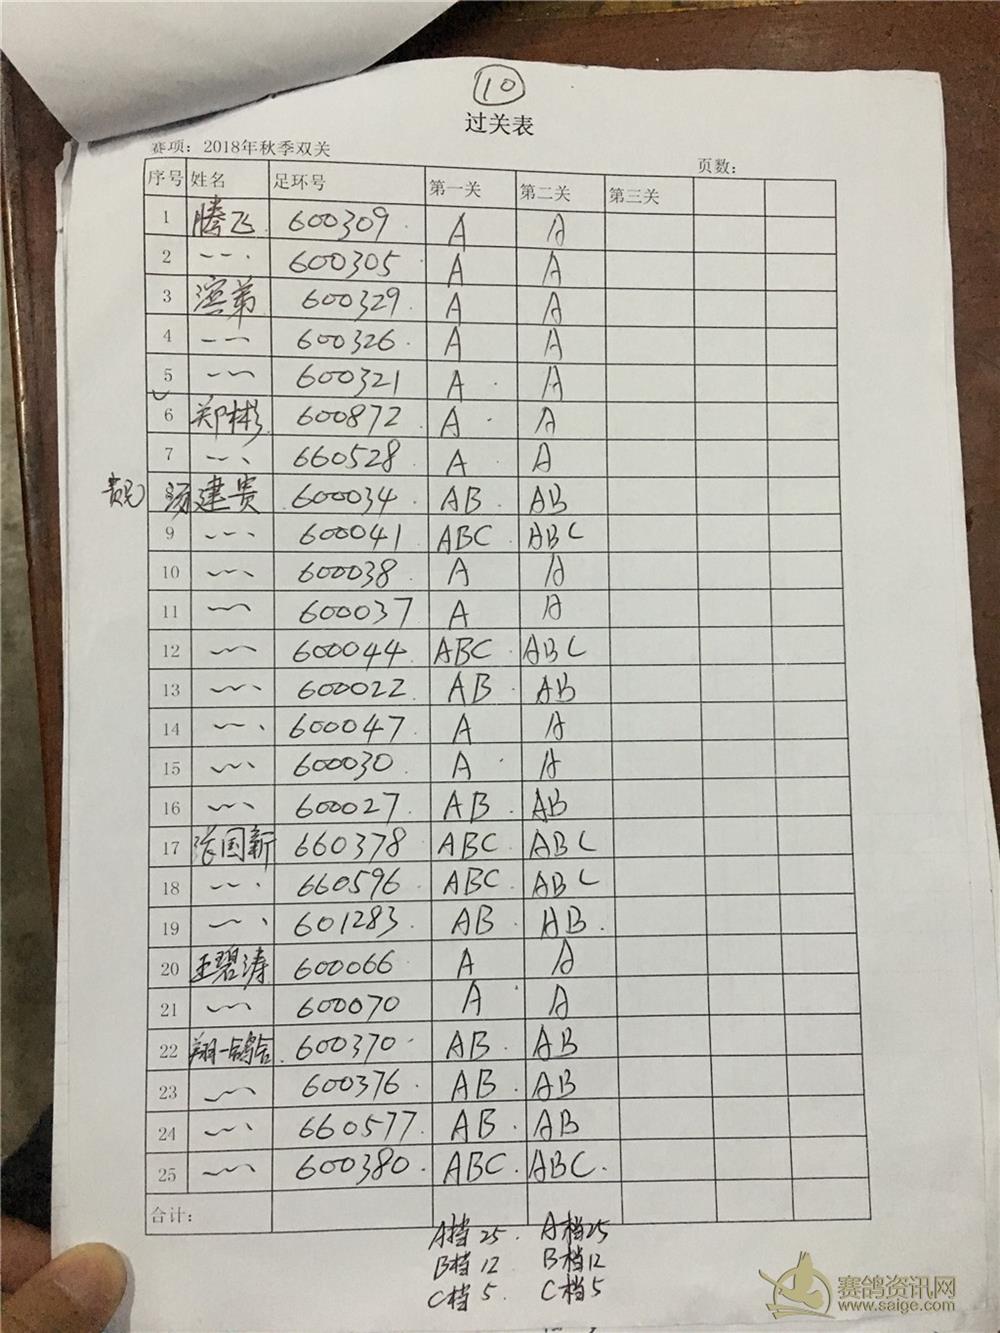 10
过关表
赛项：2018年秋季双关 页数：
序号 姓名 足环号 第一关 第二关 第三关
1 腾飞 600309 A A
2 600305 A A
3 滨弟 600329 A A
4 600326 A A
5 600321 A A
6 郑彬 600872 A A
7 660528 A A
建贵 600034 AB AB
9 600041 ABC ABC
10 600038 A A
11 600037 A A
12 600044 ABC ABC
13 600022 AB AB
14 600047 A A
15 600030 A A
16 600027 AB AB
17 张国新 660378 ABC ABC
18 660596 ABC ABC
19 601283 AB AB
20 王碧涛 600066 A A
21 600070 A A
22 翔一鸽舍 600370 AB AB
23 600376 AB AB
24 660577 AB AB
25 600380 ABC ABC
合计：
A档 25 A档 25
B档 12 B档 12
C档 5 C档 5
赛鸽资讯网
www.saige.com